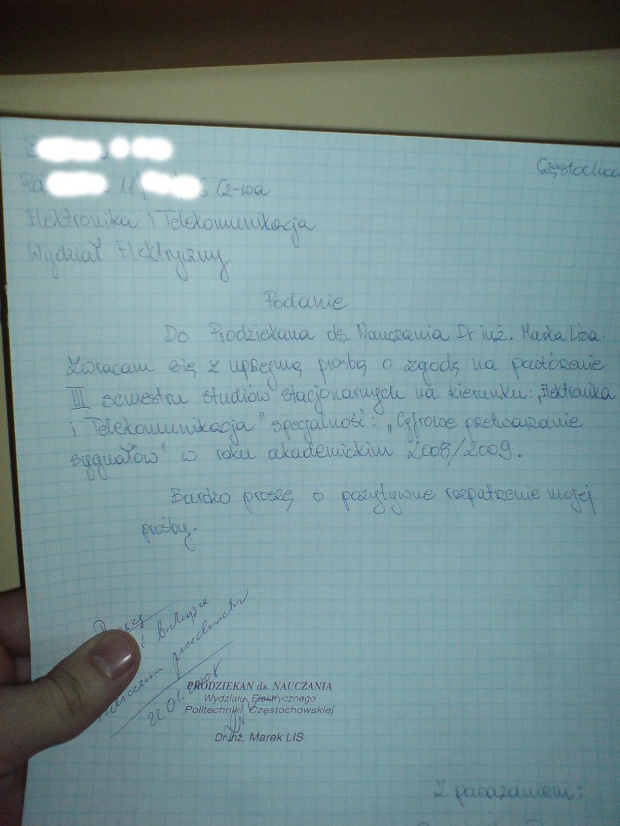 Częstochow
Cz-wa
Elektronika i Telekomunikacja
Wydział Elektryczny
Podanie
Do Prodziekana ds. Nauczania Dr inż. Marka Lisa
Zwracam się z uprzejmą prośbą o zgodę na powtórzenie
III semestru studiów stacjonarnych na kierunku: „Elektronika
i Telekomunikacja" specjalność: „Cyfrowe przetwarzanie
sygnałów" w roku akademickim 2008/2009.
Bardzo proszę o pozytywne rozpatrzenie mojej
prośby.
PRODZIEKAN ds. NAUCZANIA
Wydziału Elektrycznego
Politechniki Częstochowskiej
Dr inż. Marek LIS
Z poważaniem: